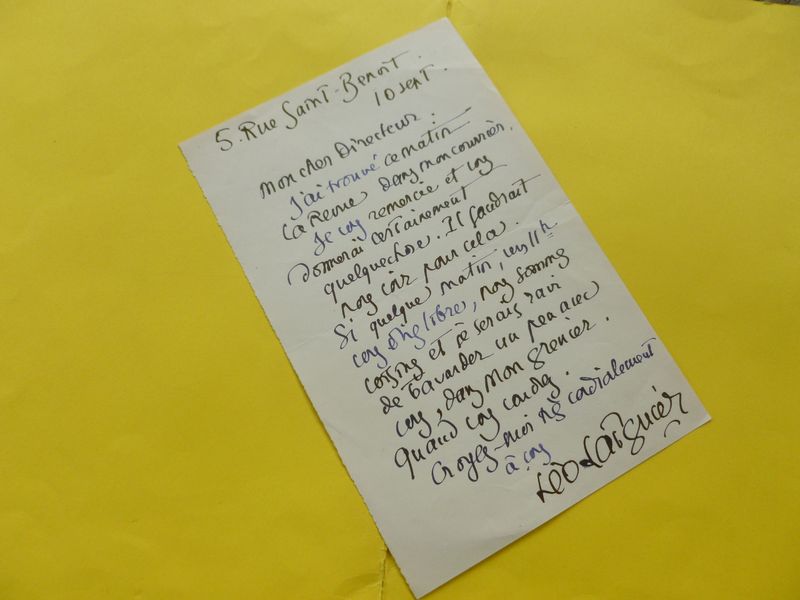 5. Rue Saint-Benoît
10 sept.
Mon cher Directeur :
J'ai trouvé ce matin
La Revue dans mon courrier.
Je vous remercie et vous
donnerai certainement
quelque chose. Il faudrait
nous voir pour cela.
Si quelque matin, vers 11h
vous êtes libre, nous sommes
voisins et je serais ravi
de bavarder un peu avec
vous, dans mon grenier.
Quand vous voudrez.
Croyez-moi très cordialement
à vous
Léo Larguier